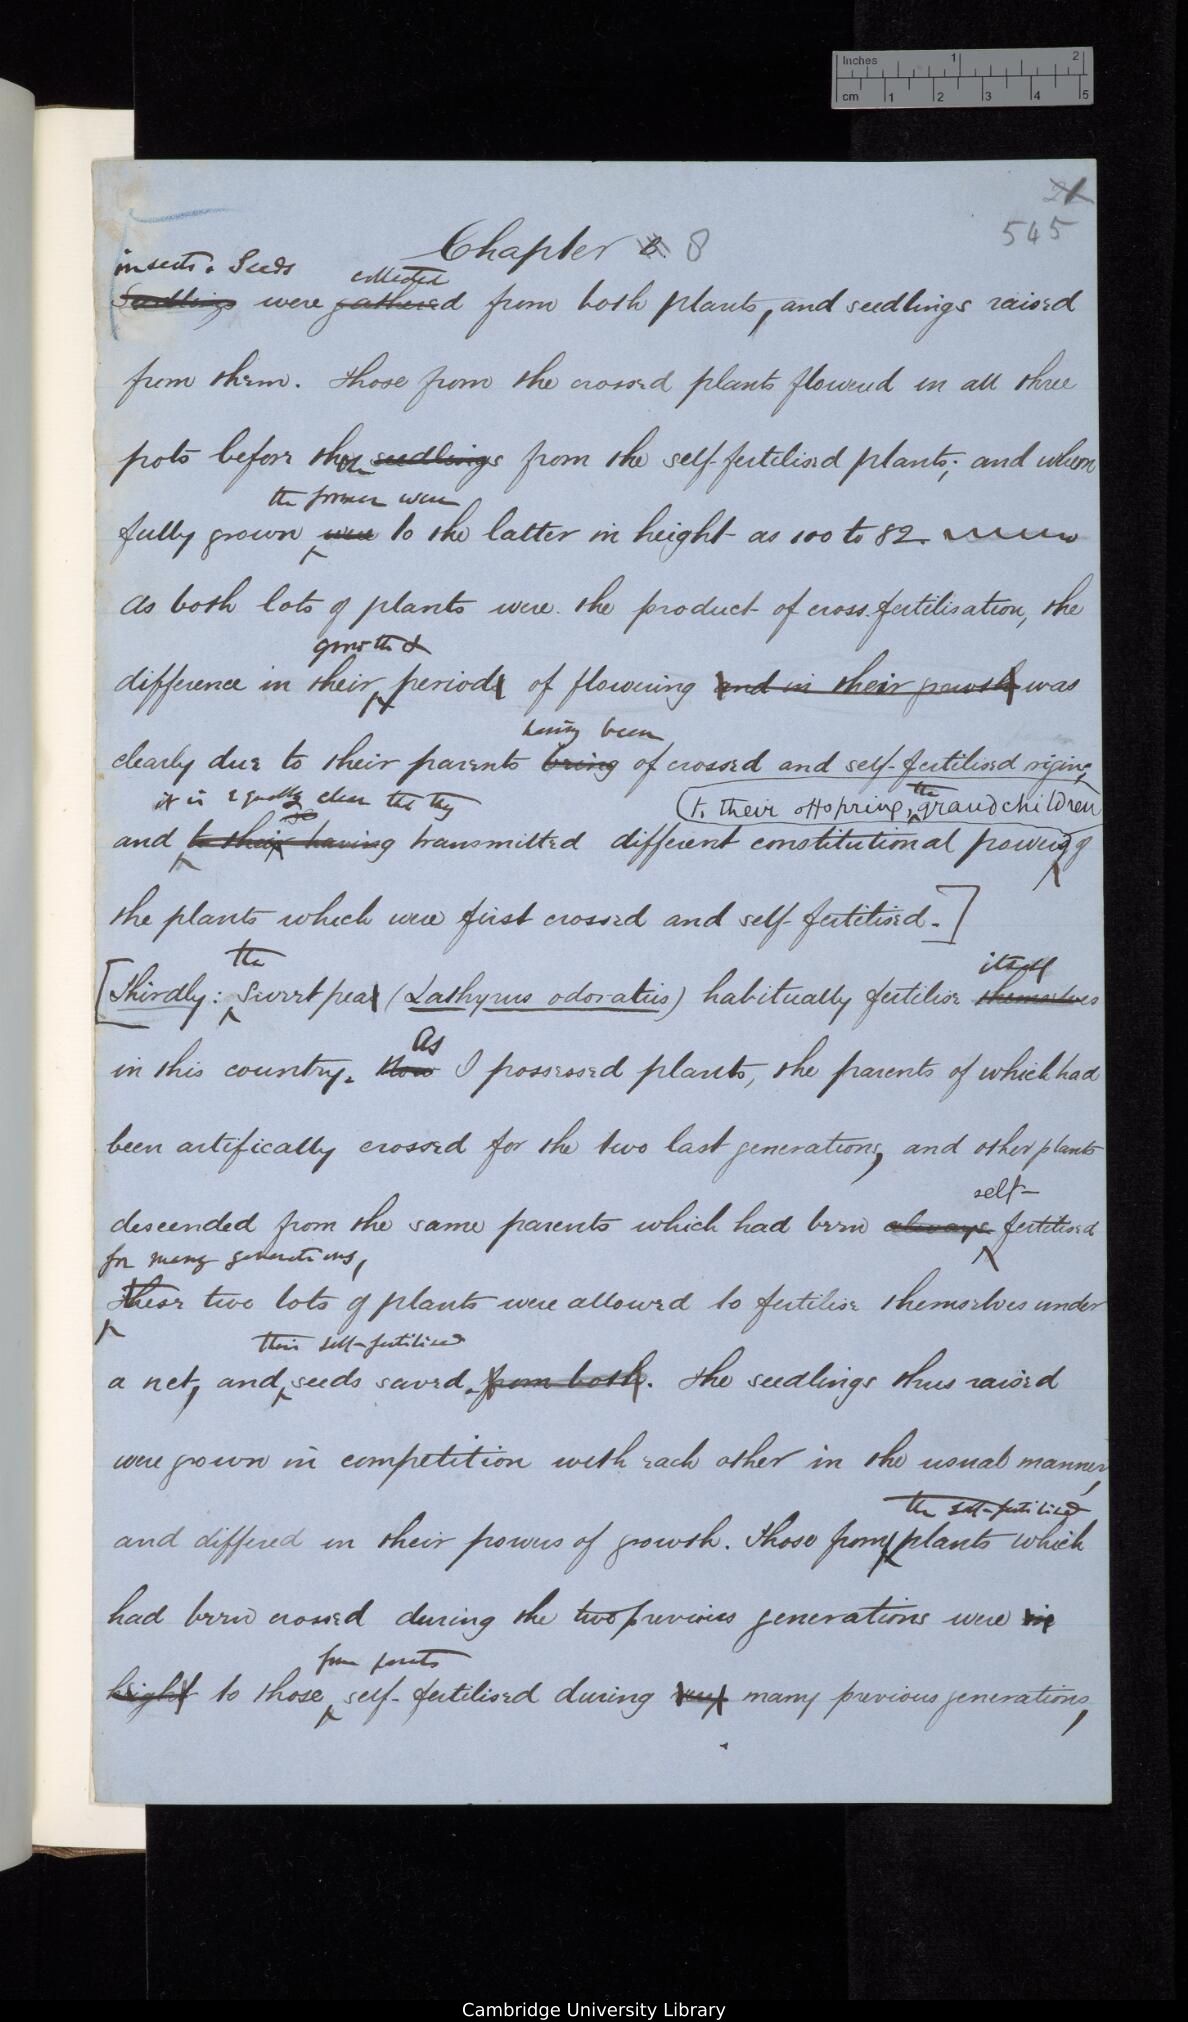 Inches 1 2
cm 1 2 3 4 5
21
545
Chapter 8
insects. Seeds collected
Seedlings were gathered from both plants, and seedlings raised
from them. Those from the crossed plants flowered in all three
pots before the seedlings from the self-fertilised plants; and when
the former were
fully grown were to the latter in height as 100 to 82.
As both lots of plants were the product of cross-fertilisation, the
growth &
difference in their periods of flowering and in their growth was
clearly due to their parents being of crossed and self-fertilised origin,
having been
it is equally clear that they
to their offspring, the grandchildren
and to their having transmitted different constitutional powers of
the plants which were first crossed and self-fertilised.]
the itself
[Thirdly: Sweet peas (Lathyrus odoratus) habitually fertilise themselves
As
in this country. Now I possessed plants, the parents of which had
been artifically crossed for the two last generations, and other plants
self-
descended from the same parents which had been always fertilised
for many generations,
These two lots of plants were allowed to fertilise themselves under
their self-fertilised
a net, and seeds saved from both. The seedlings thus raised
were grown in competition with each other in the usual manner,
the self-fertilised
and differed in their powers of growth. Those from plants which
had been crossed during the two previous generations were in
from parents
height to those self-fertilised during very many previous generations,
Cambridge University Library